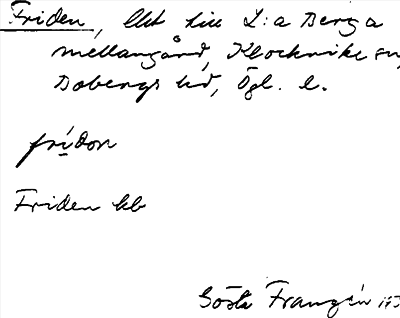 Friden, lht till L:a Berga
mellangård, Klockrike sn,
Bobergs hd, Ögl. l.
fridon
Friden kb
Gösta Franzén 193